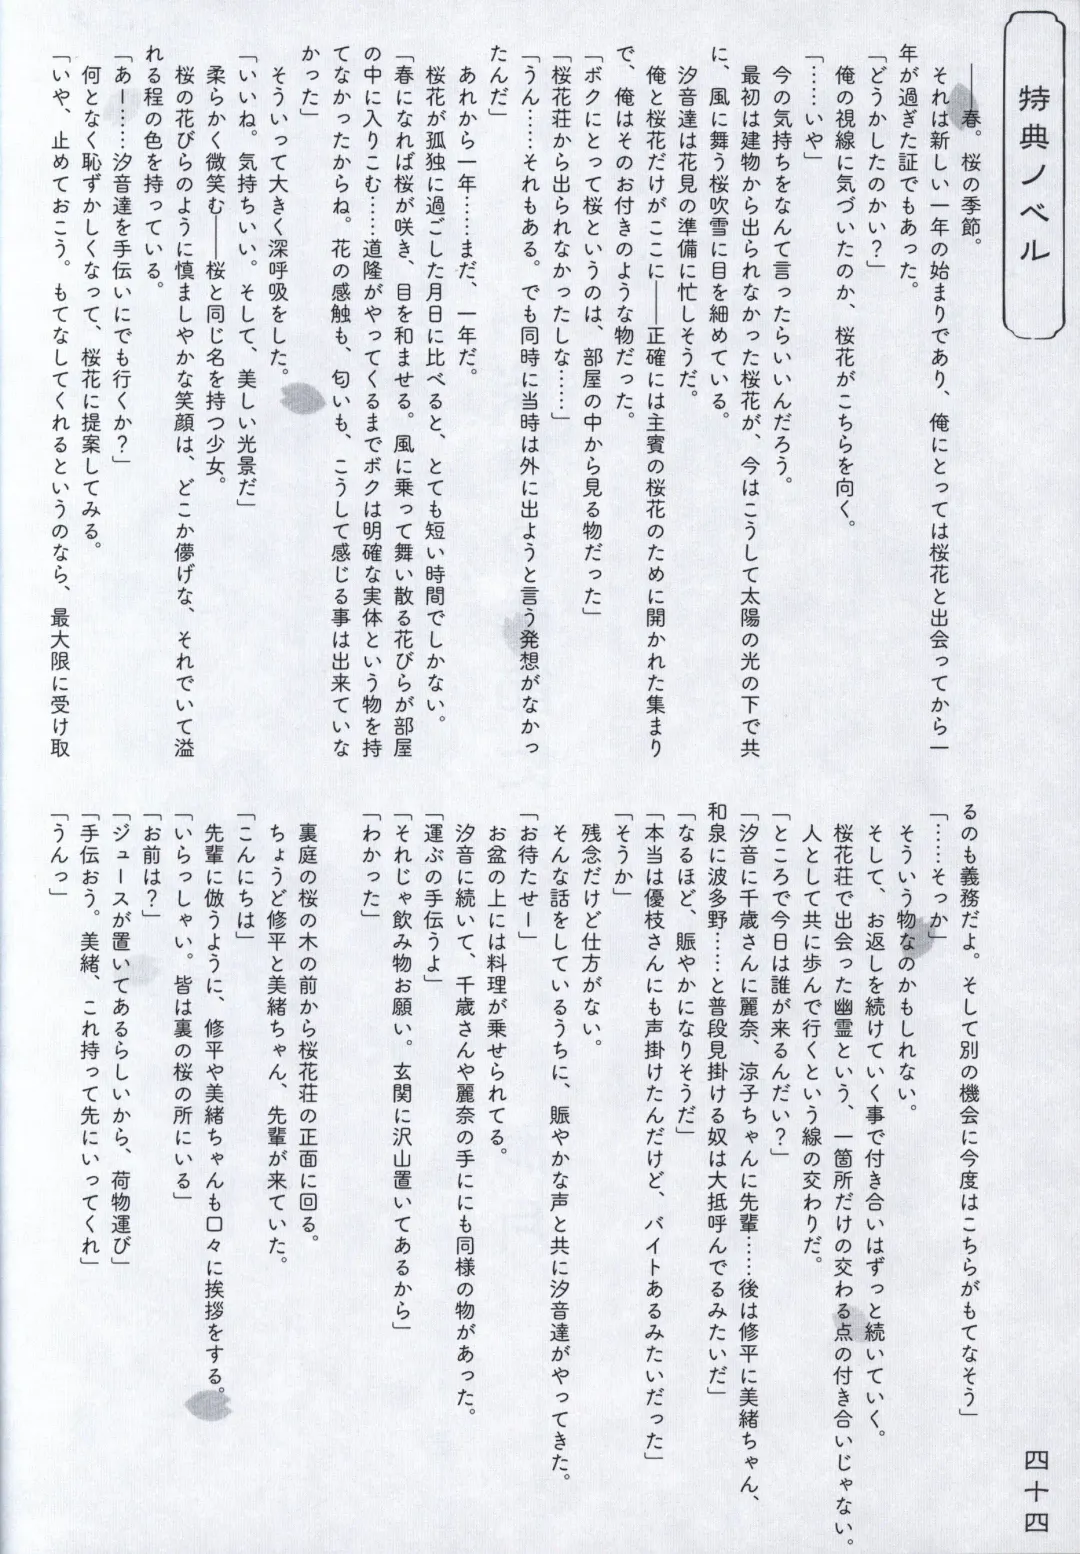 特典ノベル
――春。桜の季節。
それは新しい一年の始まりであり、俺にとっては桜花と出会ってから一
年が過ぎた証でもあった。
「どうかしたのかい？」
俺の視線に気づいたのか、桜花がこちらを向く。
「……いや」
今の気持ちをなんて言ったらいいんだろう。
最初は建物から出られなかった桜花が、今はこうして太陽の光の下で共
に、風に舞う桜吹雪に目を細めている。
汐音達は花見の準備に忙しそうだ。
俺と桜花だけがここに――正確には主賓の桜花のために開かれた集まり
で、俺はそのお付きのような物だった。
「ボクにとって桜というのは、部屋の中から見る物だった」
「桜花荘から出られなかったしな……」
「うん……それもある。でも同時に当時は外に出ようと言う発想がなかっ
たんだ」
あれから一年……まだ、一年だ。
桜花が孤独に過ごした月日に比べると、とても短い時間でしかない。
「春になれば桜が咲き、目を和ませる。風に乗って舞い散る花びらが部屋
の中に入りこむ……道隆がやってくるまでボクは明確な実体という物を持
てなかったからね。花の感触も、匂いも、こうして感じる事は出来ていな
かった」
そういって大きく深呼吸をした。
「いいね。気持ちいい。そして、美しい光景だ」
柔らかく微笑む――桜と同じ名を持つ少女。
桜の花びらのように慎ましやかな笑顔は、どこか儚げな、それでいて溢
れる程の色を持っている。
「あー……汐音達を手伝いにでも行くか？」
何となく恥ずかしくなって、桜花に提案してみる。
「いや、止めておこう。もてなしてくれるというのなら、最大限に受け取
るのも義務だよ。そして別の機会に今度はこちらがもてなそう」
「……そっか」
そういう物なのかもしれない。
そして、お返しを続けていく事で付き合いはずっと続いていく。
桜花荘で出会った幽霊という、一箇所だけの交わる点の付き合いじゃない。
人として共に歩んで行くという線の交わりだ。
「ところで今日は誰が来るんだい？」
「汐音に千歳さんに麗奈、涼子ちゃんに先輩……後は修平に美緒ちゃん、
和泉に波多野……と普段見掛ける奴は大抵呼んでるみたいだ」
「なるほど、賑やかになりそうだ」
「本当は優枝さんにも声掛けたんだけど、バイトあるみたいだった」
「そうか」
残念だけど仕方がない。
そんな話をしているうちに、賑やかな声と共に汐音達がやってきた。
「お待たせー」
お盆の上には料理が乗せられてる。
汐音に続いて、千歳さんや麗奈の手ににも同様の物があった。
「運ぶの手伝うよ」
「それじゃ飲み物お願い。玄関に沢山置いてあるから」
「わかった」
裏庭の桜の木の前から桜花荘の正面に回る。
ちょうど修平と美緒ちゃん、先輩が来ていた。
「こんにちは」
先輩に倣うように、修平や美緒ちゃんも口々に挨拶をする。
「いらっしゃい。皆は裏の桜の所にいる」
「お前は？」
「ジュースが置いてあるらしいから、荷物運び」
「手伝おう。美緒、これ持って先にいってくれ」
「うんっ」
四十四